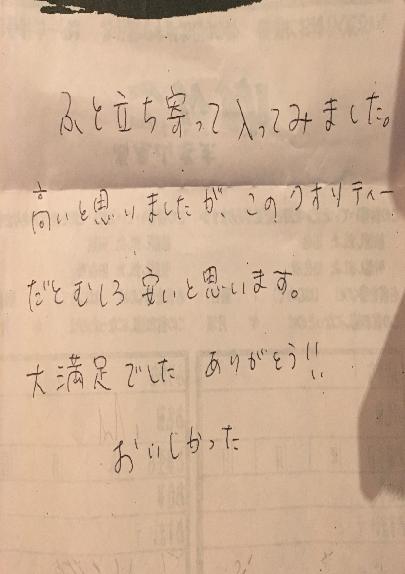 ふと立ち寄って入ってみました。
高いと思いましたが、このクオリティー
だとむしろ安いと思います。
大満足でした ありがとう!!
おいしかった